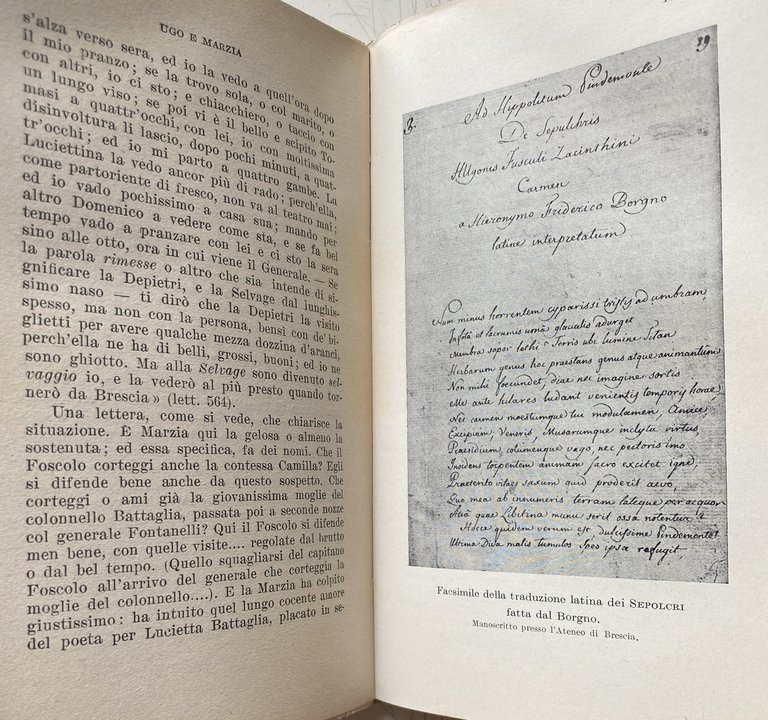 UGO E MARZIA
s'alza verso sera, ed io la vedo a quell'ora dopo
il mio pranzo; se la trovo sola, o col marito, o
con altri, io ci sto; e chiacchiero, o tacelo con
un lungo viso; se poi vi è il bello e scipito To-
masi a quattr'occhi, con lei, io con moltissima
disinvoltura li lascio, dopo pochi minuti, a quat-
tr'occhi; ed io mi parto a quattro gambe. La
Luciettina la vedo ancor più di rado; perch'ella,
come partoriente di fresco, non va al teatro mai;
ed io vado pochissimo a casa sua; mando per
altro Domenico a vedere come sta, e se fa bel
tempo vado a pranzare con lei e ci sto la sera
sino alle otto, ora in cui viene il Generale. — Se
la parola rimesse o altro che sia intende di si-
gnificare la Depietri, e la Selvage dal lunghis-
simo naso — ti dirò che la Depietri la visito
spesso, ma non con la persona, bensì con de' bi-
glietti per avere qualche mezza dozzina d'aranci,
perch'ella ne ha di belli, grossi, buoni; ed io ne
sono ghiotto. Ma alla Selvage sono divenuto sel-
vaggio io, e la vederò al più presto quando tor-
nerò da Brescia » (lett. 564).
Una lettera, come si vede, che chiarisce la
situazione. E Marzia qui la gelosa o almeno la
sostenuta; ed essa specifica, fa dei nomi. Che il
Foscolo corteggi anche la contessa Camilla? Egli
si difende bene anche da questo sospetto. Che
corteggi o ami già la giovanissima moglie del
colonnello Battaglia, passata poi a seconde nozze
col generale Fontanelli? Qui il Foscolo si difende
men bene, con quelle visite.... regolate dal brutto
o dal bel tempo. (Quello squagliarsi del capitano
Foscolo all'arrivo del generale che corteggia la
moglie del colonnello....). E la Marzia ha colpito
giustissimo: ha intuito quel lungo cocente amore
del poeta per Lucietta Battaglia, placato in se-
3.
89
Ad Hyppolitum Pindemonte
De Sepulchris
Hugonis Fusculi Zacinthini
Carmen
a Hieronymo Friderico Borgno
latine interpretatum
Num minus horrentem cyparissi tristis ad umbram,
Infletâ et lacrumis urnâ glacialis adurget
Membra sopor lethi? Terris ubi lumine Titan
Herbarum genus hoc praestans genus atque animantûm
Non mihi foecundet, diae nec imagine sortis
Elle ante hilares ludant venientis temporis horae;
Nec carmen moestumque tui modulamen, Amice,
Excipiam; Veneris, Musarumque inclyta virtus
Praesidium, columenque vago, nec pectoris imo
Insidens torpentem animam sacro excitet igne,
Praeterito vitae saxum quid proderit aevo,
Quo mea ab innumeris terram lateque per aequor
Atrâ quae Libitina manu serit ossa notentur?
Hocce quidem verum est dulcissime Pindemonte!
Ultima Diva malis tumulos Spes ipsa refugit
Facsimile della traduzione latina dei SEPOLCRI
fatta dal Borgno.
Manoscritto presso l'Ateneo di Brescia.